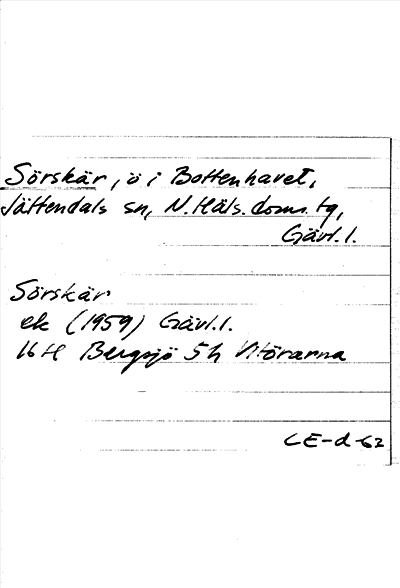 Sörskär, ö i Bottenhavet,
Jättendals sn, N. Häls. doms. tg,
Gävl. l.
Sörskär
ek (1959) Gävl. l.
16 H Bergsjö 5 h Vitörarna
CE-d-62